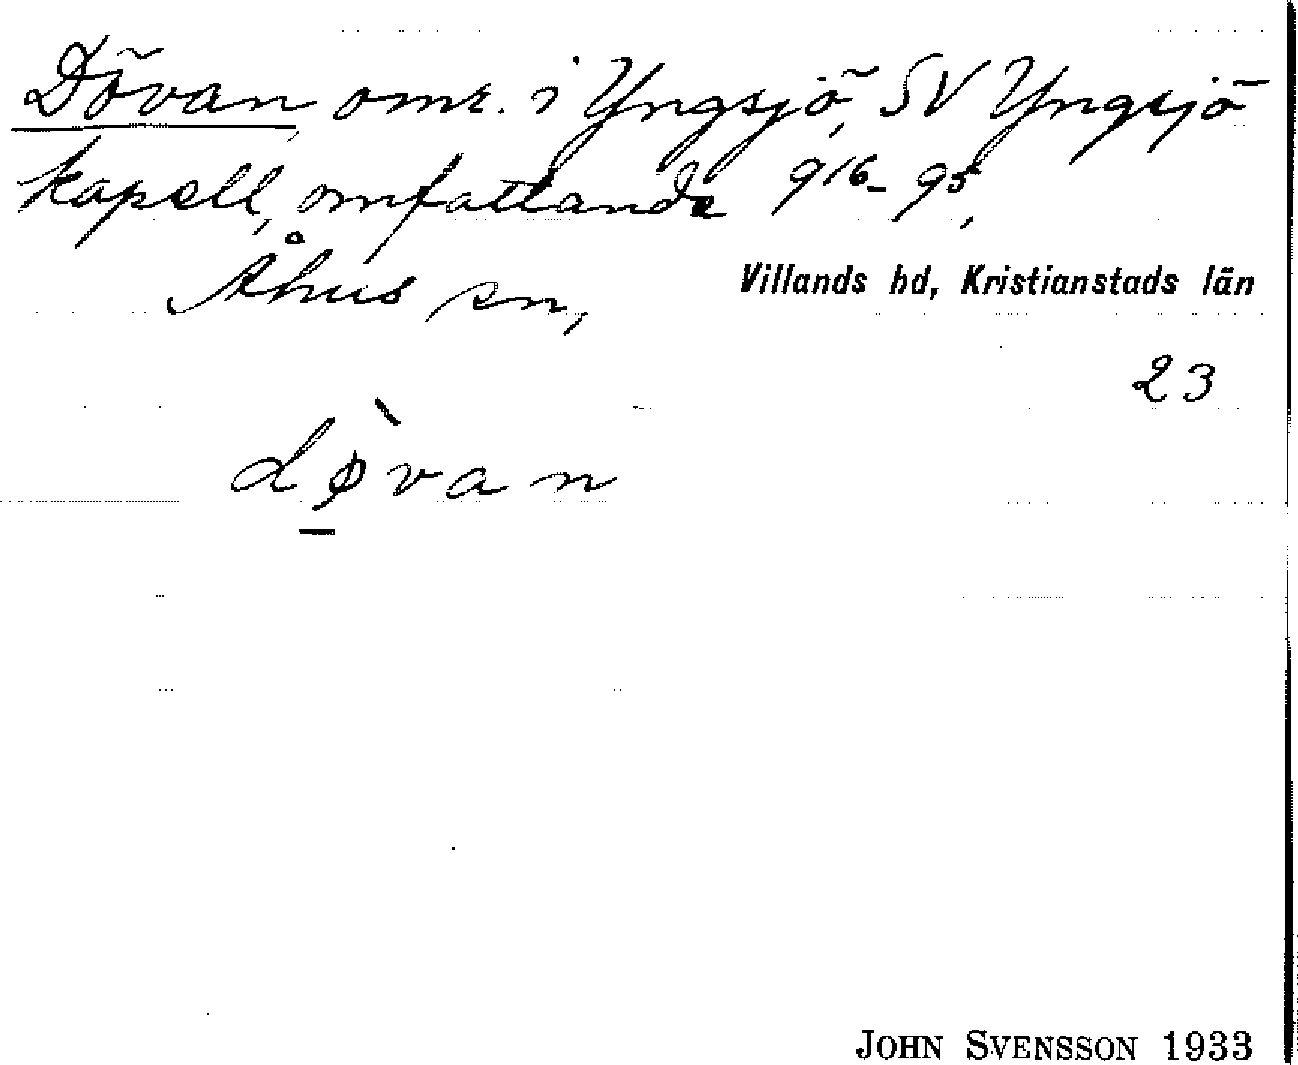 Dövan, omr. i Yngsjö, SV Yngsjö
kapell, omfattande 916-95,
Åhus sn, Villands hd, Kristianstads län
23
dø̀van
JOHN SVENSSON 1933